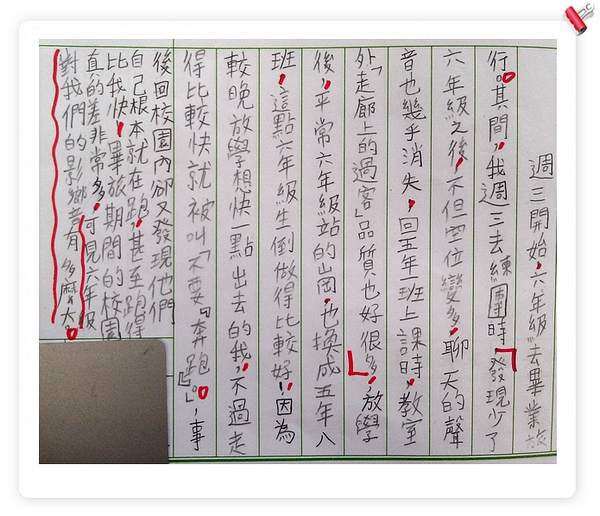 週三開始，六年級去畢業旅
行。其間，我週三去練團時發現少了
六年級之後，不但空位變多，聊天的聲
音也幾乎消失，回五年一班上課時，教室
外「走廊上的過客」品質也好很多，放學
後，平常六年級站的崗，也換成五年八
班，這點六年級生倒做得比較好！因為
較晚放學想快一點出去的我，不過走
得比較快就被叫「不要『奔跑』。」，事
後回校園內卻又發現他們
自己根本就在跑，甚至跑得
比我快，畢旅期間的校園
真的差非常多，可見六年級
對我們的影響有多麼大。